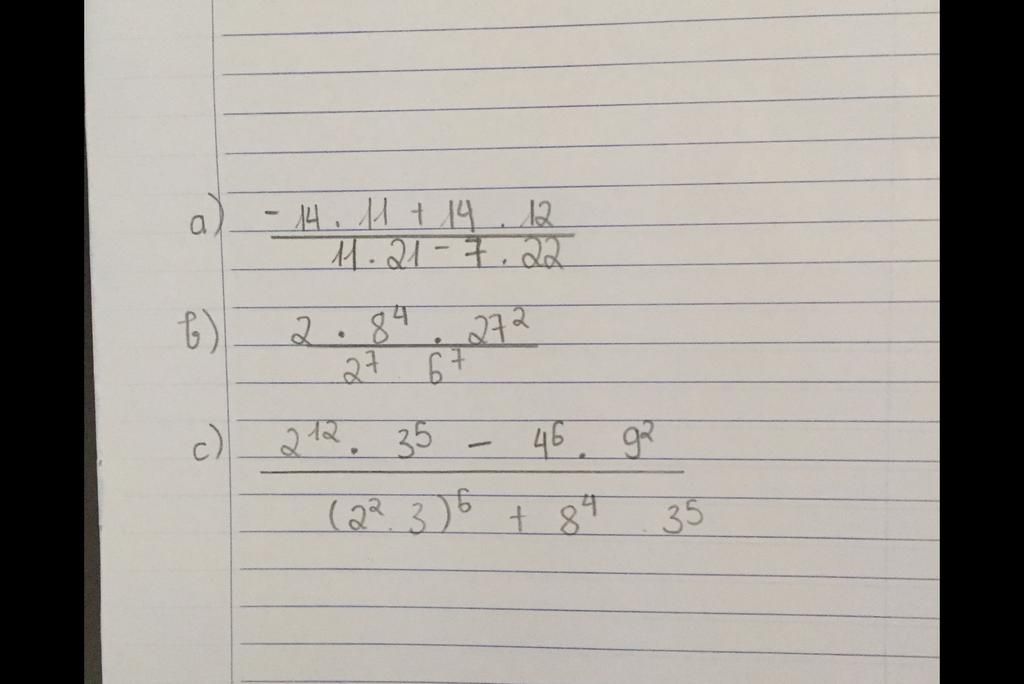 a) - 14 . 11 + 14 . 12
11 . 21 - 7 . 22
b) 2 . 8⁴ . 27²
2⁷ 6⁷
c) 2¹² . 3⁵ - 4⁶ . 9²
(2² . 3)⁶ + 8⁴ . 3⁵